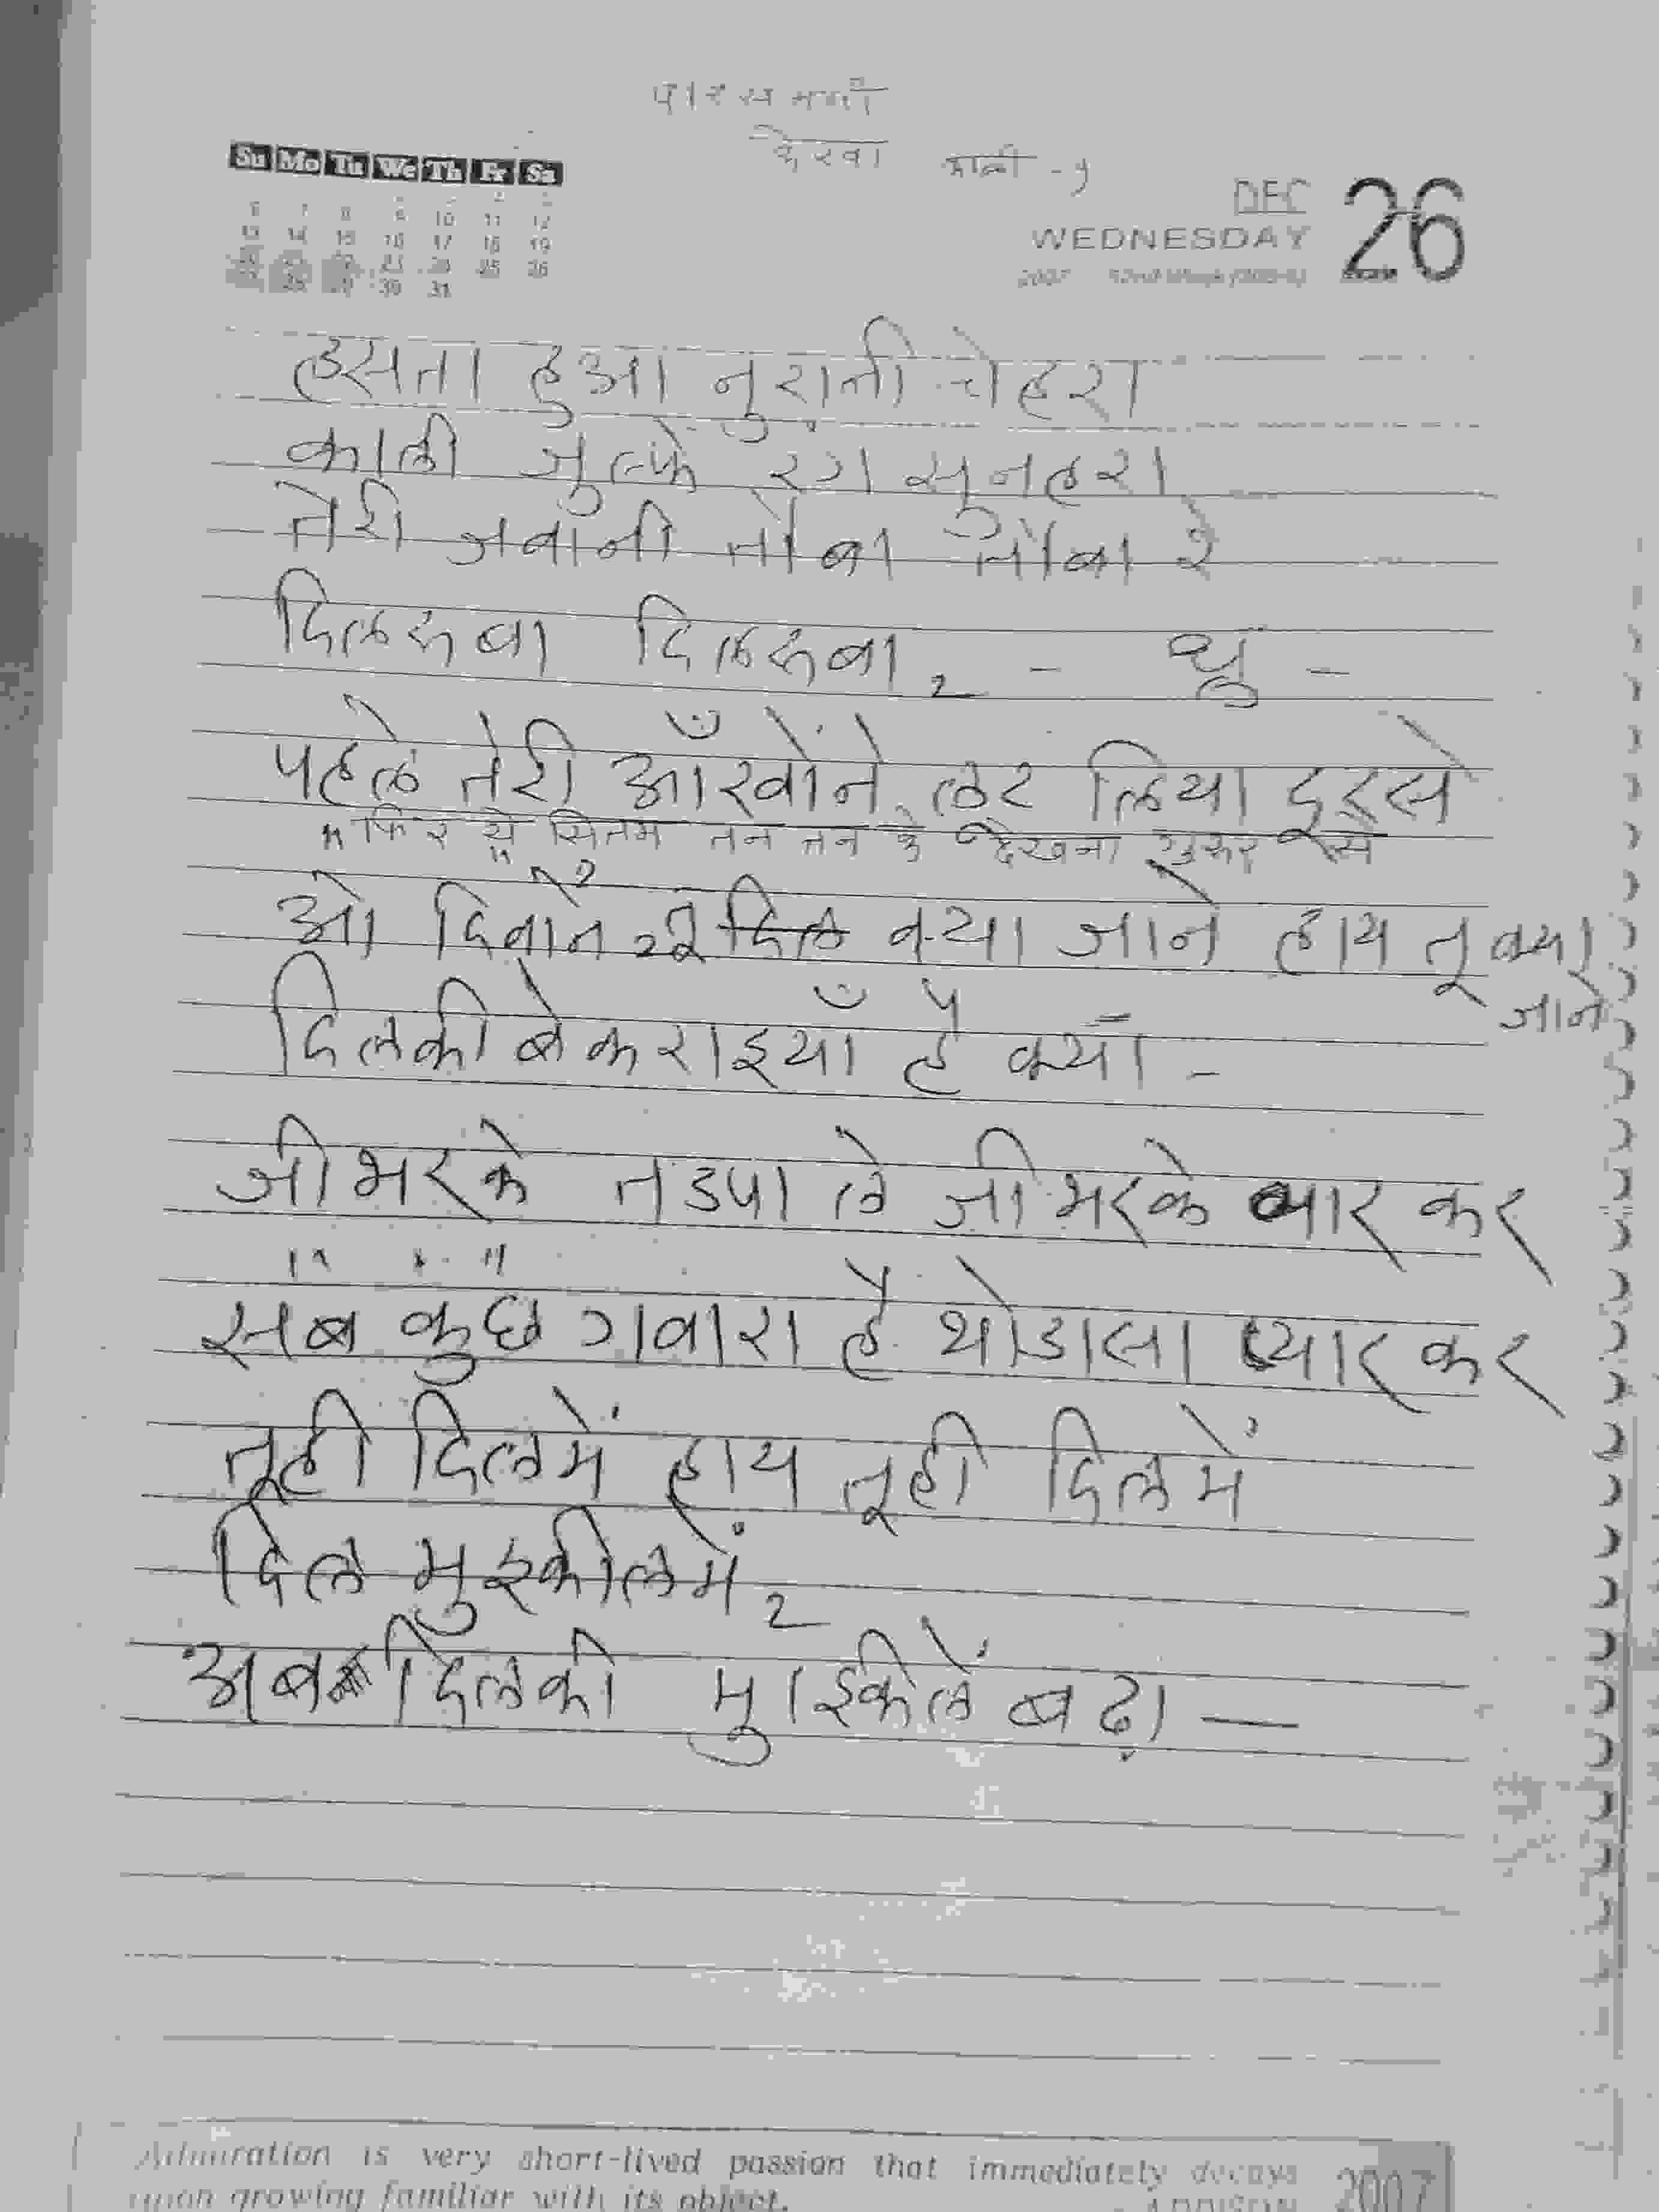 पारसमणी
देखा काली-१
Su Mo Tu We Th Fr Sa
6 7 8 9 10 11 12
13 14 15 16 17 18 19
23 24 25 26
30 31
DEC 26
WEDNESDAY
2007
हसता हुआ नुरानी चेहरा
काली जुल्फे रंग सुनहरा
तेरी जवानी तोबा तोबा रे
दिलरुबा दिलरुबा 2 - धृ -
पहले तेरी आँखोंने लूट लिया दूरसे
" फिर ये सितम तन तन के देखना गुरुर से
ओ दिवाने 2 तू दिल क्या जाने हाय तू क्या
जाने
दिलकी बेकराइयाँ है क्या -
जी भरके तडपा ले जी भरके प्यार कर
सब कुछ गवारा है थोडासा प्यार कर
तूही दिलमें हाय तूही दिलमें
दिल मुश्कीलमें 2
अब दिलकी मुश्किलें बढ़ा —
Admiration is very short-lived passion that immediately decays
upon growing familiar with its object.
ADDISON
2007